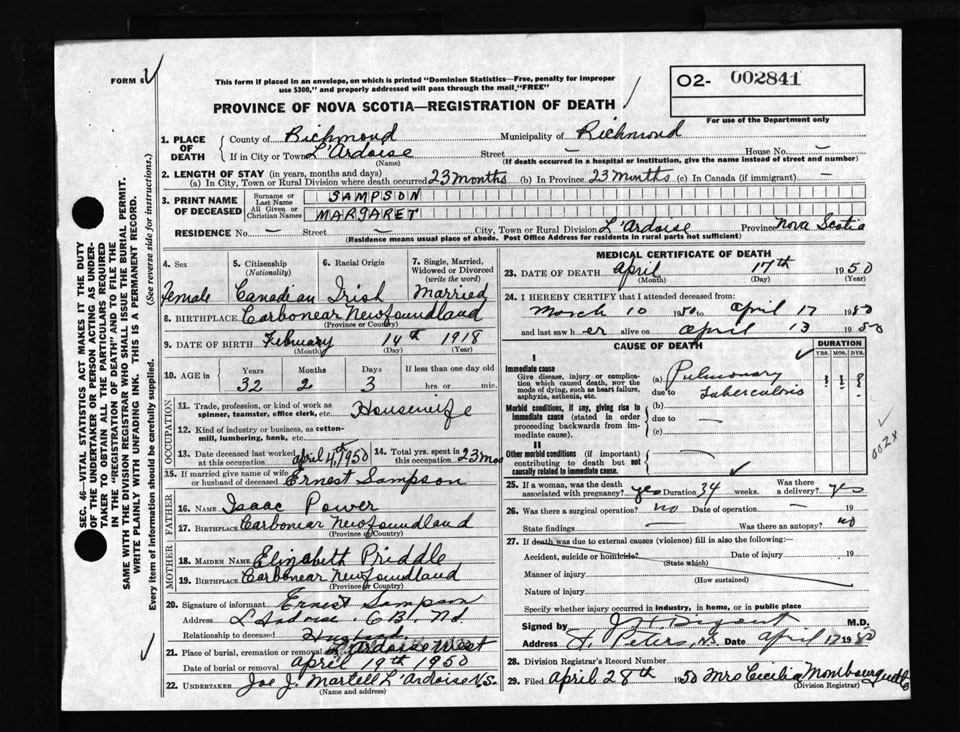 FORM 6
This form if placed in an envelope, on which is printed "Dominion Statistics—Free, penalty for improper
use $300," and properly addressed will pass through the mail "FREE"
PROVINCE OF NOVA SCOTIA—REGISTRATION OF DEATH
O2- 002841
For use of the Department only
SEC. 46—VITAL STATISTICS ACT MAKES IT THE DUTY
OF THE UNDERTAKER OR PERSON ACTING AS UNDER-
TAKER TO OBTAIN ALL THE PARTICULARS REQUIRED
IN THE "REGISTRATION OF DEATH" AND TO FILE THE
SAME WITH THE DIVISION REGISTRAR WHO SHALL ISSUE THE BURIAL PERMIT.
WRITE PLAINLY WITH UNFADING INK. THIS IS A PERMANENT RECORD.
Every item of information should be carefully supplied. (See reverse side for instructions.)
1. PLACE OF DEATH County of Richmond Municipality of Richmond
If in City or Town L'Ardoise Street — House No. —
(Name) (If death occurred in a hospital or institution, give the name instead of street and number)
2. LENGTH OF STAY (in years, months and days)
(a) In City, Town or Rural Division where death occurred 23 months (b) In Province 23 months (c) In Canada (if immigrant) —
3. PRINT NAME OF DECEASED Surname or Last Name SAMPSON
All Given or Christian Names MARGARET
RESIDENCE No. — Street — City, Town or Rural Division L'Ardoise Province Nova Scotia
(Residence means usual place of abode. Post Office Address for residents in rural parts not sufficient)
4. Sex 5. Citizenship (Nationality) 6. Racial Origin 7. Single, Married, Widowed or Divorced (write the word)
Female Canadian Irish Married
8. BIRTHPLACE Carbonear Newfoundland
(Province or Country)
9. DATE OF BIRTH February 14th 1918
(Month) (Day) (Year)
10. AGE in Years Months Days If less than one day old
32 2 3 hrs. or min.
OCCUPATION
11. Trade, profession, or kind of work as
spinner, teamster, office clerk, etc. Housewife
12. Kind of industry or business, as cotton-
mill, lumbering, bank, etc.
13. Date deceased last worked at this occupation April 4, 1950 14. Total yrs. spent in this occupation 23 mos
15. If married give name of wife
or husband of deceased Ernest Sampson
FATHER
16. NAME Isaac Power
17. BIRTHPLACE Carbonear Newfoundland
(Province or Country)
MOTHER
18. MAIDEN NAME Elizabeth Priddle
19. BIRTHPLACE Carbonear Newfoundland
(Province or Country)
20. Signature of informant Ernest Sampson
Address L'Ardoise C.B.
Relationship to deceased Husband
21. Place of burial, cremation or removal L'Ardoise West
Date of burial or removal April 19th 1950
22. UNDERTAKER Joe J. Martell L'Ardoise N.S.
(Name and address)
MEDICAL CERTIFICATE OF DEATH
23. DATE OF DEATH April 17th 1950
(Month) (Day) (Year)
24. I HEREBY CERTIFY that I attended deceased from:
March 10 1950 to April 17 1950
and last saw her alive on April 13 1950
CAUSE OF DEATH
DURATION
YRS. MOS. DYS.
I
Immediate cause
Give disease, injury or complica-
tion which caused death, NOT the
mode of dying, such as heart failure,
asphyxia, asthenia, etc.
(a) Pulmonary
due to Tuberculosis
? ? ?
Morbid conditions, if any, giving rise to
immediate cause (stated in order
proceeding backwards from im-
mediate cause).
(b)
due to —
(c)
II
Other morbid conditions (if important)
contributing to death but not
causally related to immediate cause.
002x
25. If a woman, was the death
associated with pregnancy? yes Duration 34 weeks. Was there a delivery? yes
26. Was there a surgical operation? no Date of operation — 19
State findings Was there an autopsy? no
27. If death was due to external causes (violence) fill in also the following:—
Accident, suicide or homicide? Date of injury 19
(State which)
Manner of injury
(How sustained)
Nature of injury
Specify whether injury occurred in industry, in home, or in public place
Signed by M.D.
Address St. Peters, N.S. Date April 17 1950
28. Division Registrar's Record Number
29. Filed April 28th 1950 Mrs Cecilia Mombourquette
(Division Registrar)